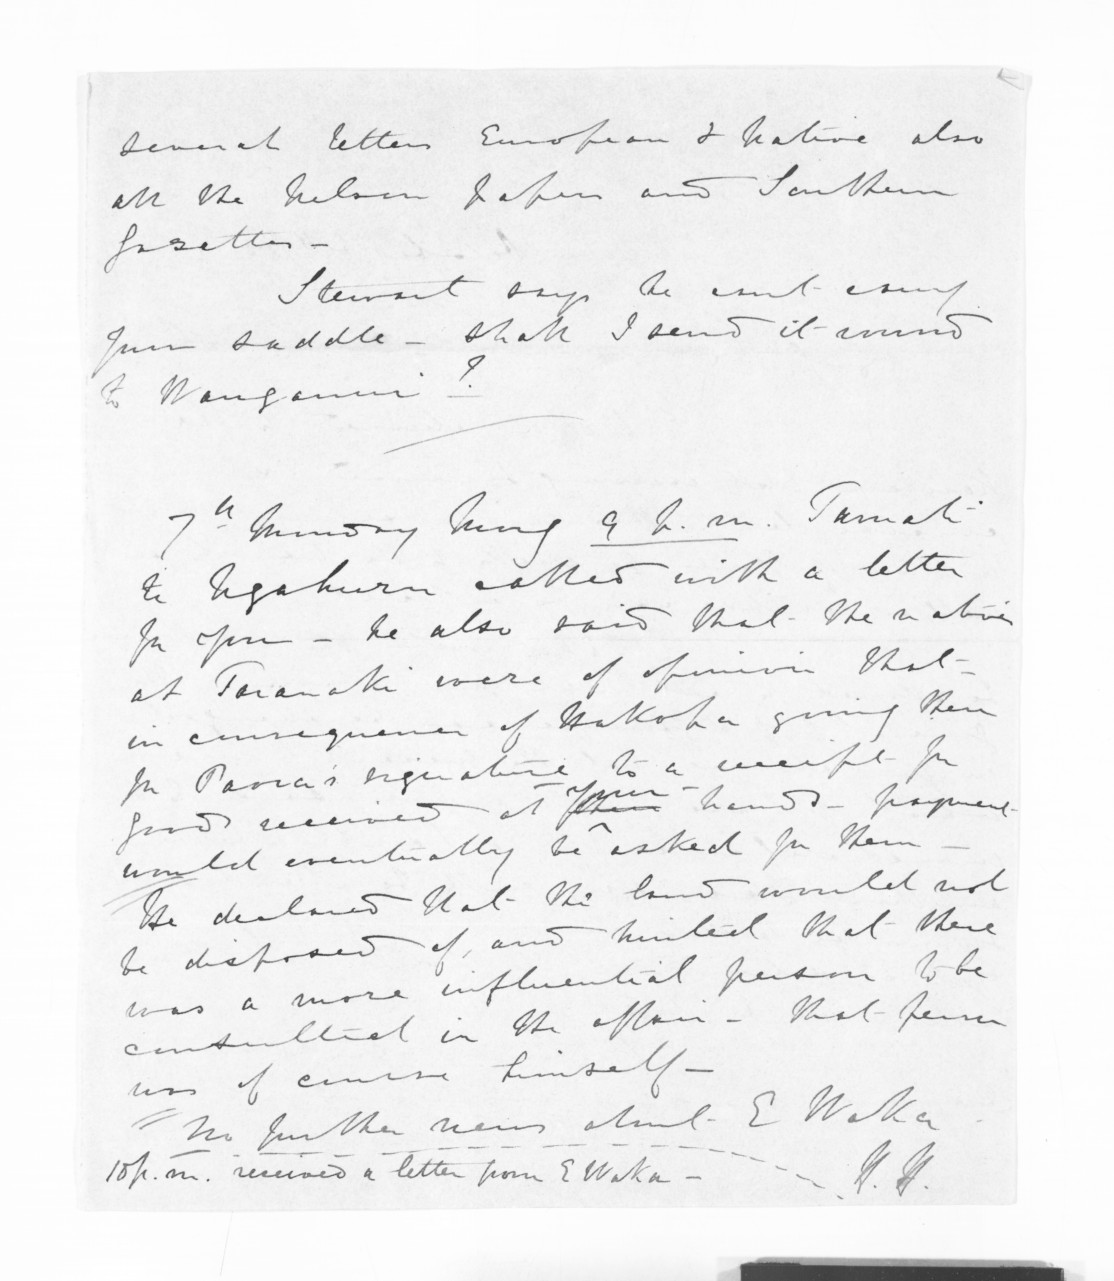 several letters European & Native also
all the Nelson papers and Southern
Gazettes -
Stewart says he can't carry
your saddle - shall I send it round
to Wanganui ?
7th Monday Mng 9 p. m. Tamati
te Ngahuru called with a letter
for you - he also said that the natives
at Taranaki were of opinion that
in consequence of Hakopa giving them
for Paora's signature to a receipt for
goods received at your hands - payment
would eventually be asked for them -
He declared that the land would not
be disposed of, and hinted that there
was a more influential person to be
consulted in the affair - that person
was of course himself -
No further news about E Waka -
10 p. m. received a letter from E Waka -
H. H.